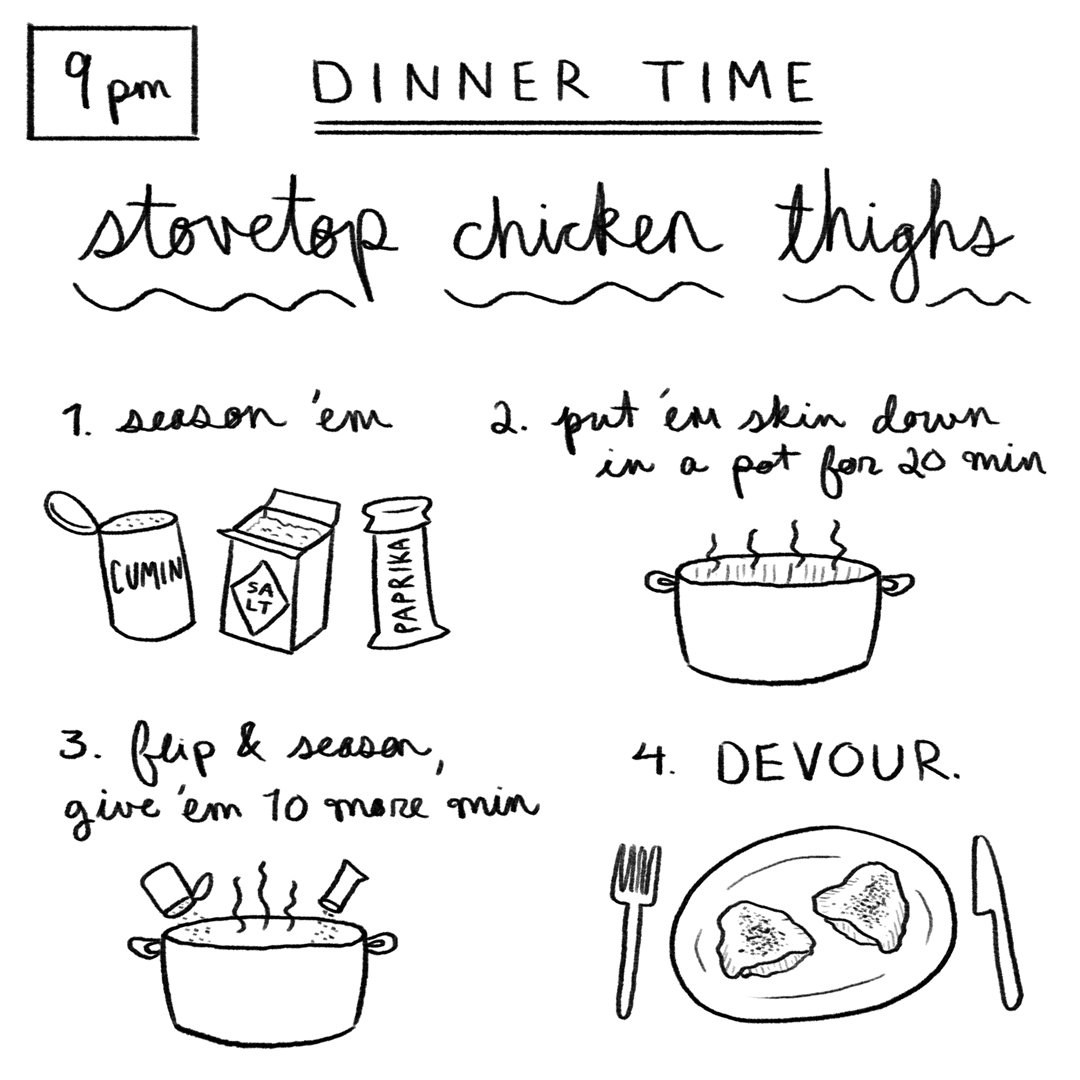 9 pm
DINNER TIME
stovetop chicken thighs
1. season 'em
CUMIN
SA
LT
PAPRIKA
2. put 'em skin down
in a pot for 20 min
3. flip & season,
give 'em 10 more min
4. DEVOUR.